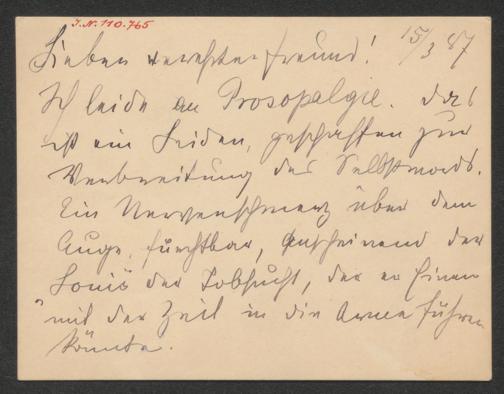 J.N. 110.765
15/3 87
Lieber verehrter Freund!
Ich leide an Prosopalgie. Das
ist ein Leiden, geschaffen zur
Verbreitung des Selbstmords.
Ein Nervenschmerz über dem
Auge, furchtbar, anscheinend der
der Tobsucht, der er Einen
mit der Zeit in die Arme führen
könnte.